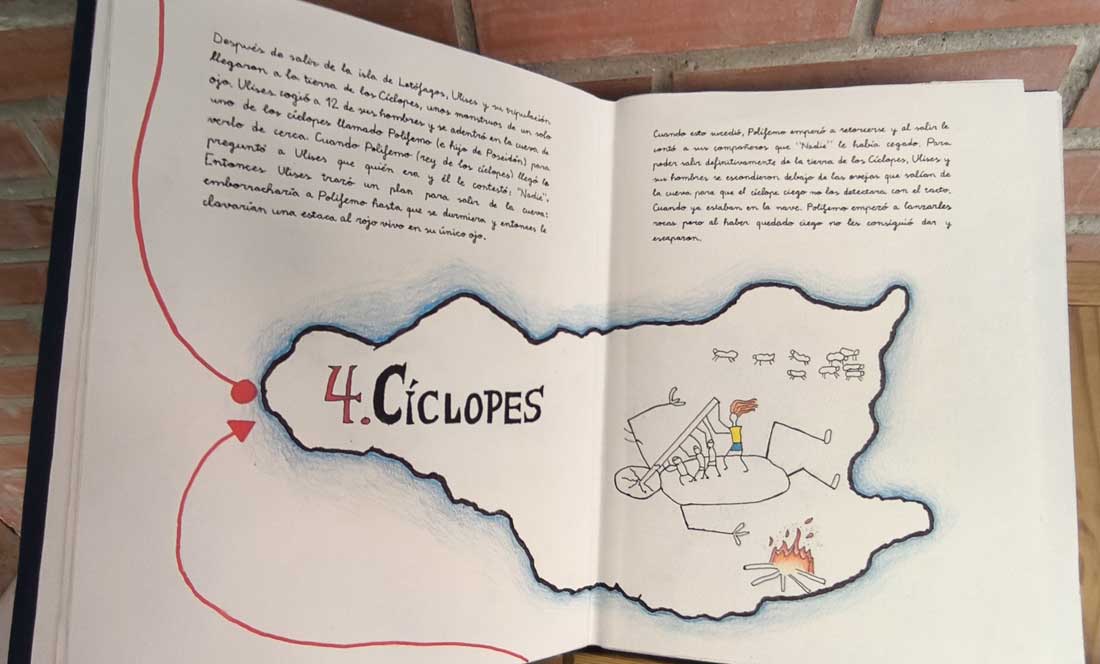 Después de salir de la isla de Lotófagos, Ulises y su tripulación
llegaron a la tierra de los Cíclopes, unos monstruos de un solo
ojo. Ulises cogió a 12 de sus hombres y se adentró en la cueva de
uno de los cíclopes llamado Polifemo (e hijo de Poseidón) para
verlo de cerca. Cuando Polifemo (rey de los cíclopes) llegó le
preguntó a Ulises que quién era y él le contestó: "Nadie".
Entonces Ulises trazó un plan para salir de la cueva:
emborracharía a Polifemo hasta que se durmiera y entonces le
clavarían una estaca al rojo vivo en su único ojo.
Cuando esto sucedió, Polifemo empezó a retorcerse y al salir le
contó a sus compañeros que "Nadie" le había cegado. Para
poder salir definitivamente de la tierra de los Cíclopes, Ulises y
sus hombres se escondieron debajo de las ovejas que salían de
la cueva para que el cíclope ciego no los detectara con el tacto.
Cuando ya estaban en la nave, Polifemo empezó a lanzarles
rocas pero al haber quedado ciego no les consiguió dar y
escaparon.
4. CÍCLOPES